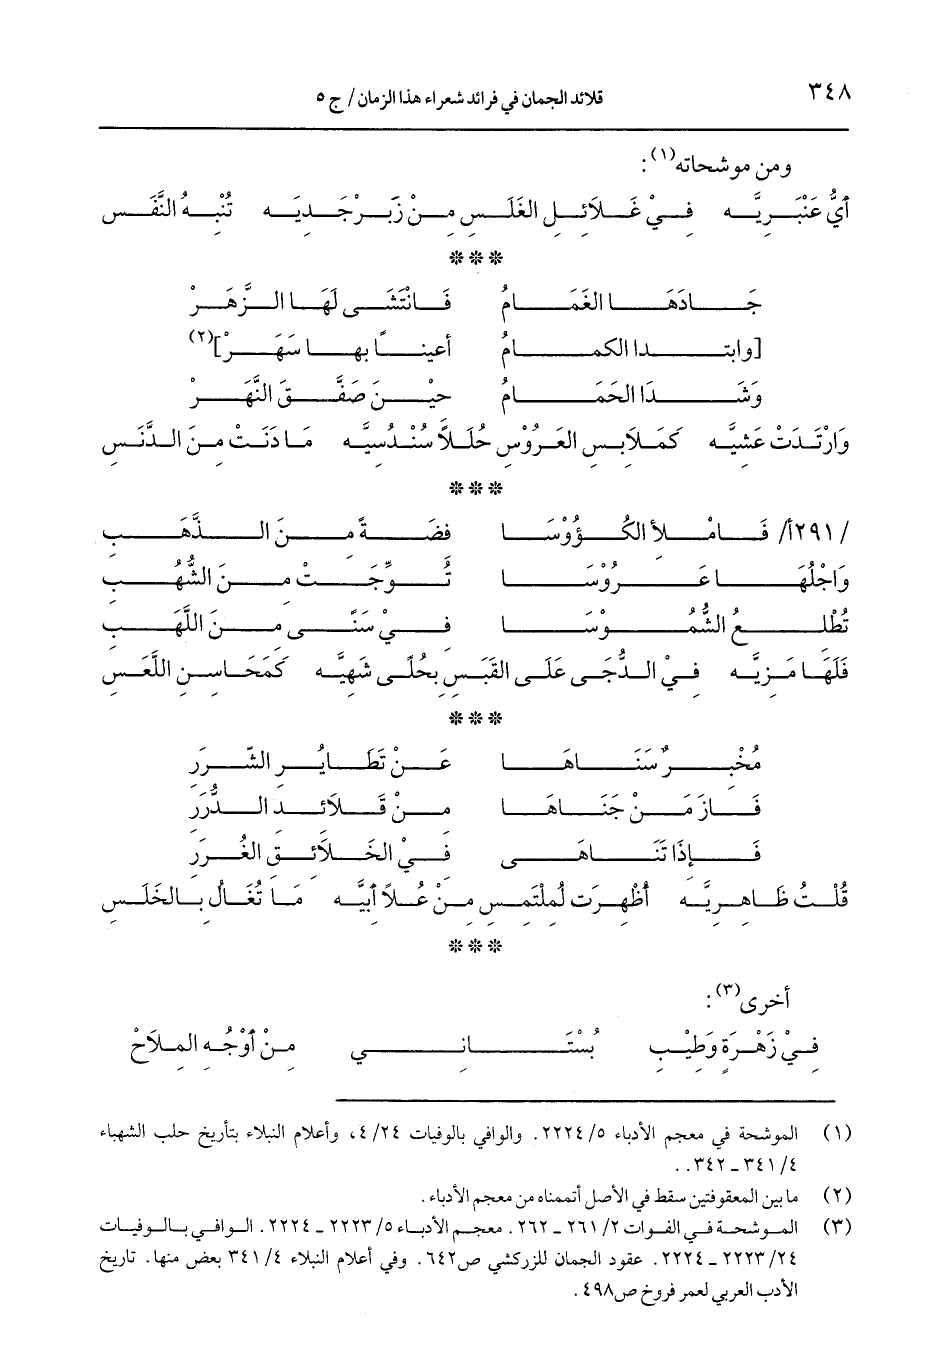 ٣٤٨ قلائد الجمان في فرائد شعراء هذا الزمان/ ج ٥
ومن موشحاته(١):
أيُّ عَنْبَرِيَّه فِيْ غَلَائِلِ الغَلَسِ مِنْ زَبَرْجَدِيَه تُنْبِهُ النَّفَسِ
***
جَادَهَا الغَمَامُ فَانْتَشَى لَهَا الزَّهَرْ
[وابتدا الكمامُ أعيناً بها سَهَرْ](٢)
وَشَدَا الحَمَامُ حِيْنَ صَفَّقَ النَّهَرْ
وَارْتَدَتْ عَشِيَّه كَمَلَابِسِ العَرُوْسِ حُلَلاً سُنْدُسِيَّه مَا دَنَتْ مِنَ الدَّنَسِ
***
/٢٩١أ/ فَامْلأ الكُؤُوْسَا فِضَةً مِنَ الذَّهَبِ
وَاجْلُهَا عَرُوْسَا تُوِّجَتْ مِنَ الشُّهُبِ
تُطْلِعُ الشُّمُوْسَا فِيْ سَنًى مِنَ اللَّهَبِ
فَلَهَا مَزِيَّه فِيْ الدُّجَى عَلَى القَبَسِ بِحُلًى شَهِيَّه كَمَحَاسِنِ اللَّعَسِ
***
مُخْبِرٌ سَنَاهَا عَنْ تَطَايُرِ الشّرَرِ
فَازَ مَنْ جَنَاهَا مِنْ قَلَائِدِ الدُّرَرِ
فَإِذَا تَنَاهَى فِيْ الخَلَائِقِ الغُرَرِ
قُلْتُ ظَاهِرِيَّه أَظْهِرَت لُملْتَمِسِ مِنْ عُلاً أَبِيَّه مَا تُغَالُ بِالخَلَسِ
***
أخرى(٣):
فِيْ زَهْرَةٍ وَطِيْبِ بُسْتَانِي مِنْ أَوْجُهِ المِلَاحْ
(١) الموشحة في معجم الأدباء ٥/ ٢٢٢٤. والوافي بالوفيات ٢٤/ ٤، وأعلام النبلاء بتأريخ حلب الشهباء
٤/ ٣٤١ ـ ٣٤٢. .
(٢) ما بين المعقوفتين سقط في الأصل أتممناه من معجم الأدباء.
(٣) الموشحة في الفوات ٢/ ٢٦١ ـ ٢٦٢. معجم الأدباء ٥/ ٢٢٢٣ ـ ٢٢٢٤. الوافي بالوفيات
٢٤/ ٢٢٢٣ ـ ٢٢٢٤. عقود الجمان للزركشي ص٦٤٢. وفي أعلام النبلاء ٤/ ٣٤١ بعض منها. تاريخ
الأدب العربي لعمر فروخ ص٤٩٨.